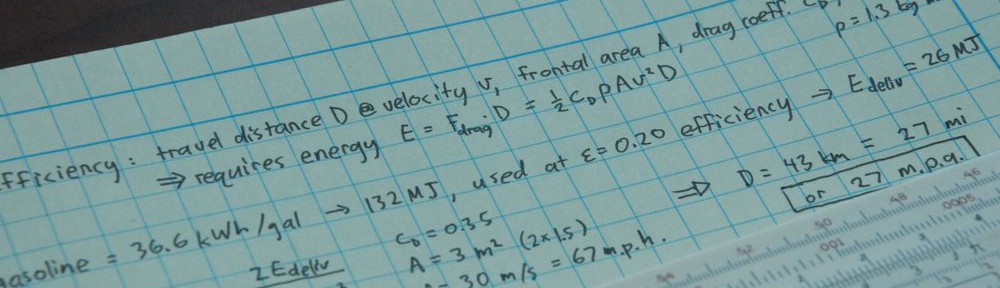 fficiency: travel distance D @ velocity v, frontal area A, drag coeff. C_D,
ρ = 1.3 kg
⇒ requires energy E = F_drag · D = ½ C_D ρ A v² D
gasoline = 36.6 kWh/gal → 132 MJ, used at ε = 0.20 efficiency → E_deliv = 26 MJ
C_D = 0.35
⇒ D = 43 km = 27 mi
or 27 m.p.g.
2 E_deliv
A = 3 m² (2×1.5)
30 m/s = 67 m.p.h.